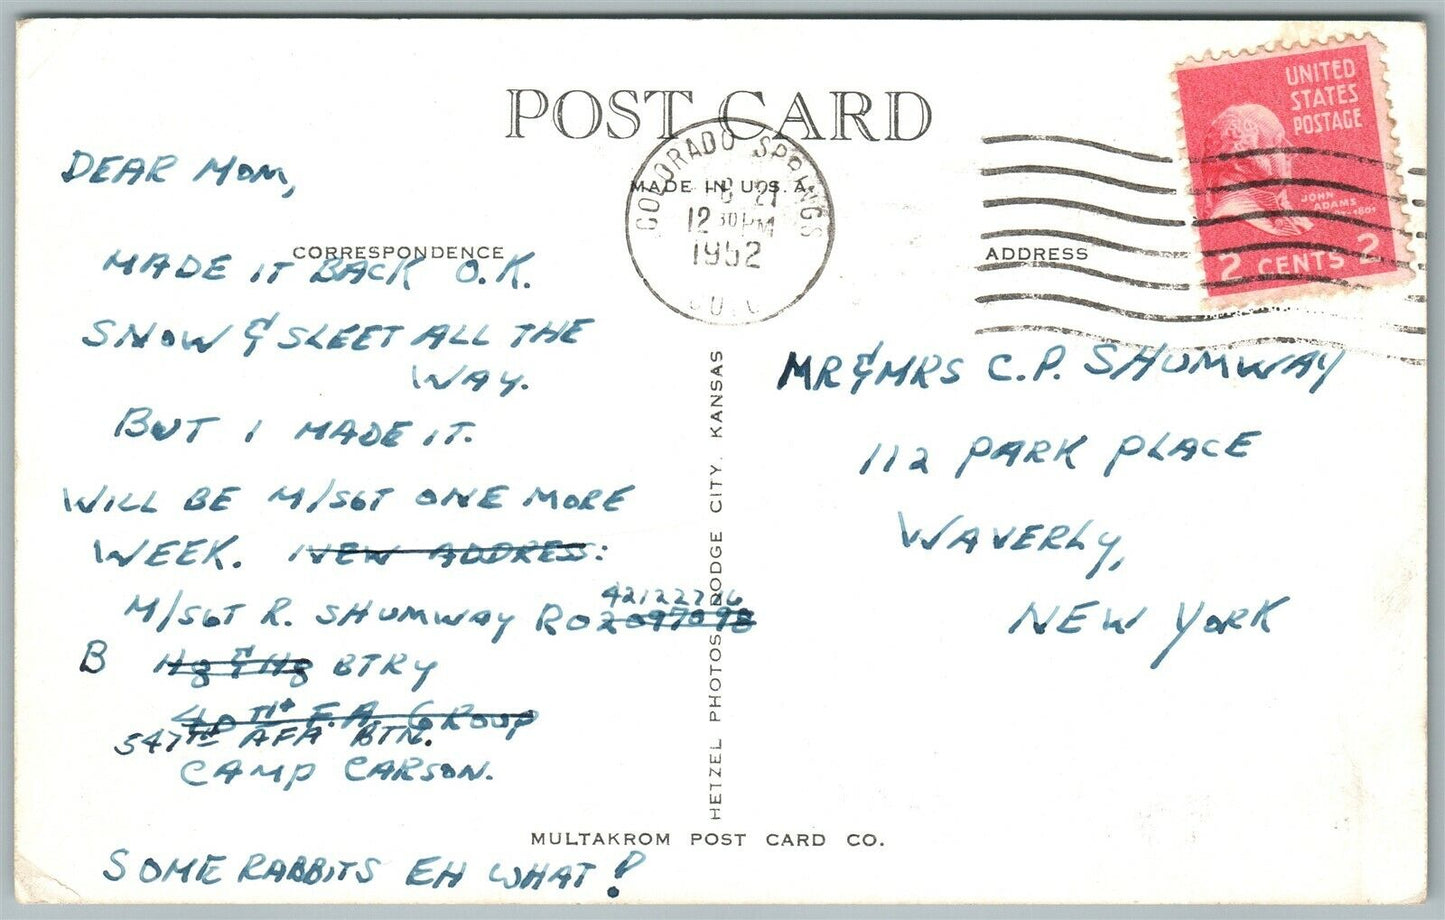 POST CARD
MADE IN U.S.A.
COLORADO SPRINGS
21
12 30 PM
1952
COLO
UNITED
STATES
POSTAGE
JOHN
ADAMS
2 CENTS 2
CORRESPONDENCE
ADDRESS
DEAR MOM,
MADE IT BACK O.K.
SNOW & SLEET ALL THE
WAY.
BUT I MADE IT.
WILL BE M/SGT ONE MORE
WEEK. NEW ADDRESS:
M/SGT R. SHUMWAY RO 2097098
B Hq & Hq BTRY
40TH F.A. GROUP
547TH AFA BTN.
CAMP CARSON.
SOME RABBITS EH WHAT!
MR & MRS C.P. SHUMWAY
112 PARK PLACE
WAVERLY,
NEW YORK
HETZEL PHOTOS DODGE CITY, KANSAS
MULTAKROM POST CARD CO.